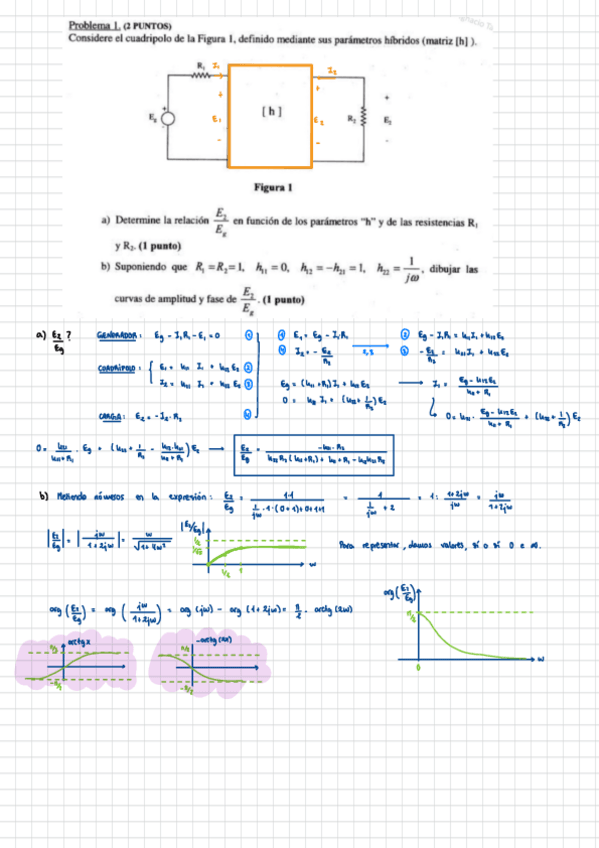 Problema 1. (2 PUNTOS)
Considere el cuadripolo de la Figura 1, definido mediante sus parámetros híbridos (matriz [h] ).
R₁ I₁ I₂
+ + +
E_g E₁ [ h ] E₂ R₂ E₂
- - -
Figura 1
a) Determine la relación E₂/E_g en función de los parámetros "h" y de las resistencias R₁
y R₂. (1 punto)
b) Suponiendo que R₁ = R₂ = 1, h₁₁ = 0, h₁₂ = -h₂₁ = 1, h₂₂ = 1/jω, dibujar las
curvas de amplitud y fase de E₂/E_g. (1 punto)
a) E₂/Eg ?
GENERADOR: Eg - I₁R₁ - E₁ = 0 ①
CUADRIPOLO: { E₁ = h₁₁ I₁ + h₁₂ E₂ ②
I₂ = h₂₁ I₁ + h₂₂ E₂ ③
CARGA: E₂ = -I₂ · R₂ ④
① E₁ = Eg - I₁R₁
④ I₂ = - E₂/R₂
2,3
② Eg - I₁R₁ = h₁₁I₁ + h₁₂E₂
③ - E₂/R₂ = h₂₁I₁ + h₂₂E₂
Eg = (h₁₁ + R₁) I₁ + h₁₂ E₂ → I₁ = (Eg - h₁₂E₂)/(h₁₁ + R₁)
0 = h₂₁ I₁ + (h₂₂ + 1/R₂) E₂
0 = h₂₁ · (Eg - h₁₂E₂)/(h₁₁ + R₁) + (h₂₂ + 1/R₂) E₂
0 = h₂₁/(h₁₁ + R₁) · Eg + (h₂₂ + 1/R₂ - h₁₂·h₂₁/(h₁₁ + R₁)) E₂ → E₂/Eg = -h₂₁ · R₂/(h₂₂ R₂ (h₁₁ + R₁) + h₁₁ + R₁ - h₁₂h₂₁R₂)
b) Metiendo números en la expresión: E₂/Eg = 1·1/(1/jw · 1 · (0+1) + 0 + 1 + 1) = 1/(1/jw + 2) = 1 : (1+2jw)/jw = jw/(1+2jw)
|E₂/Eg| = |jw/(1+2jw)| = w/√(1+4w²)
|E₂/Eg|
1/2
1/2 1 w
Para representar, damos valores, sí o sí 0 e ∞.
arg (E₂/Eg) = arg (jw/(1+2jw)) = arg (jw) - arg (1+2jw) = π/2 - arctg (2w)
arctg x
π/2
-π/2
-arctg (2x)
π/2
-π/2
arg (E₂/Eg)
π/2
0 w